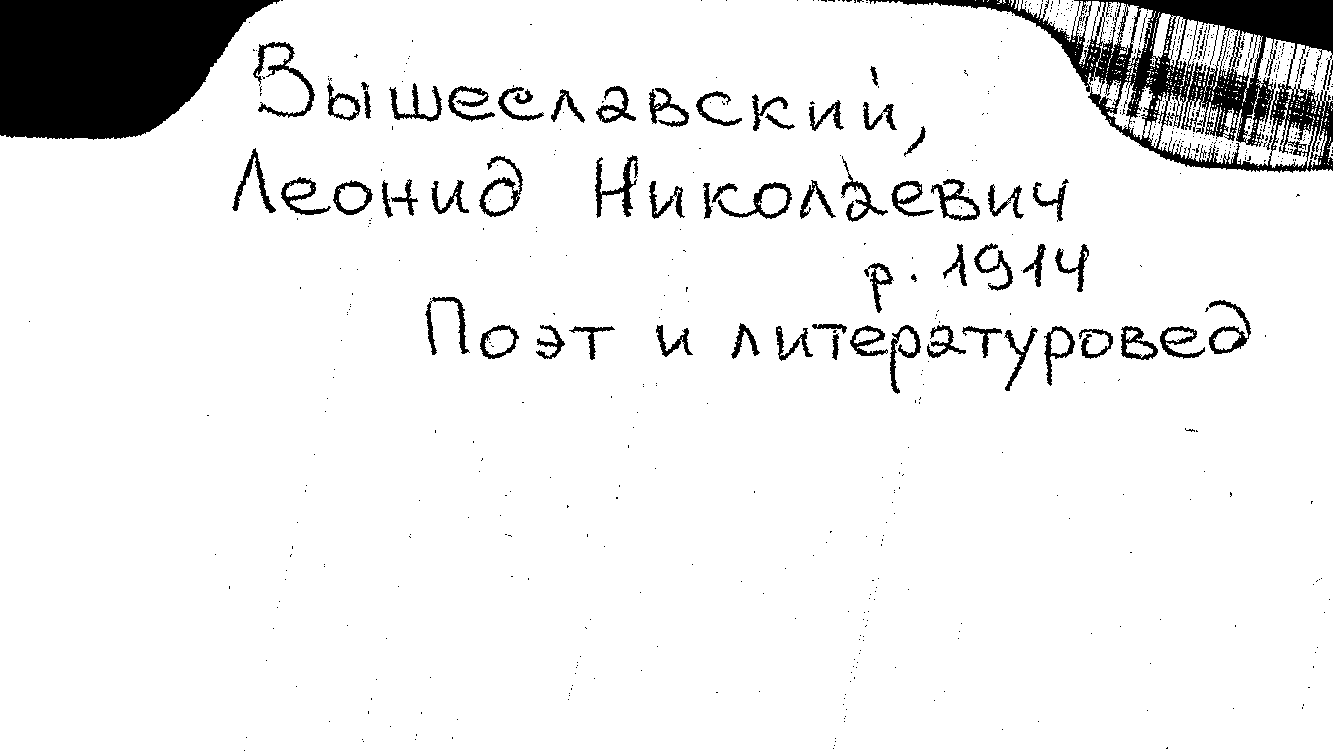 Вышеславский,
Леонид Николаевич
р. 1914
Поэт и литературовед